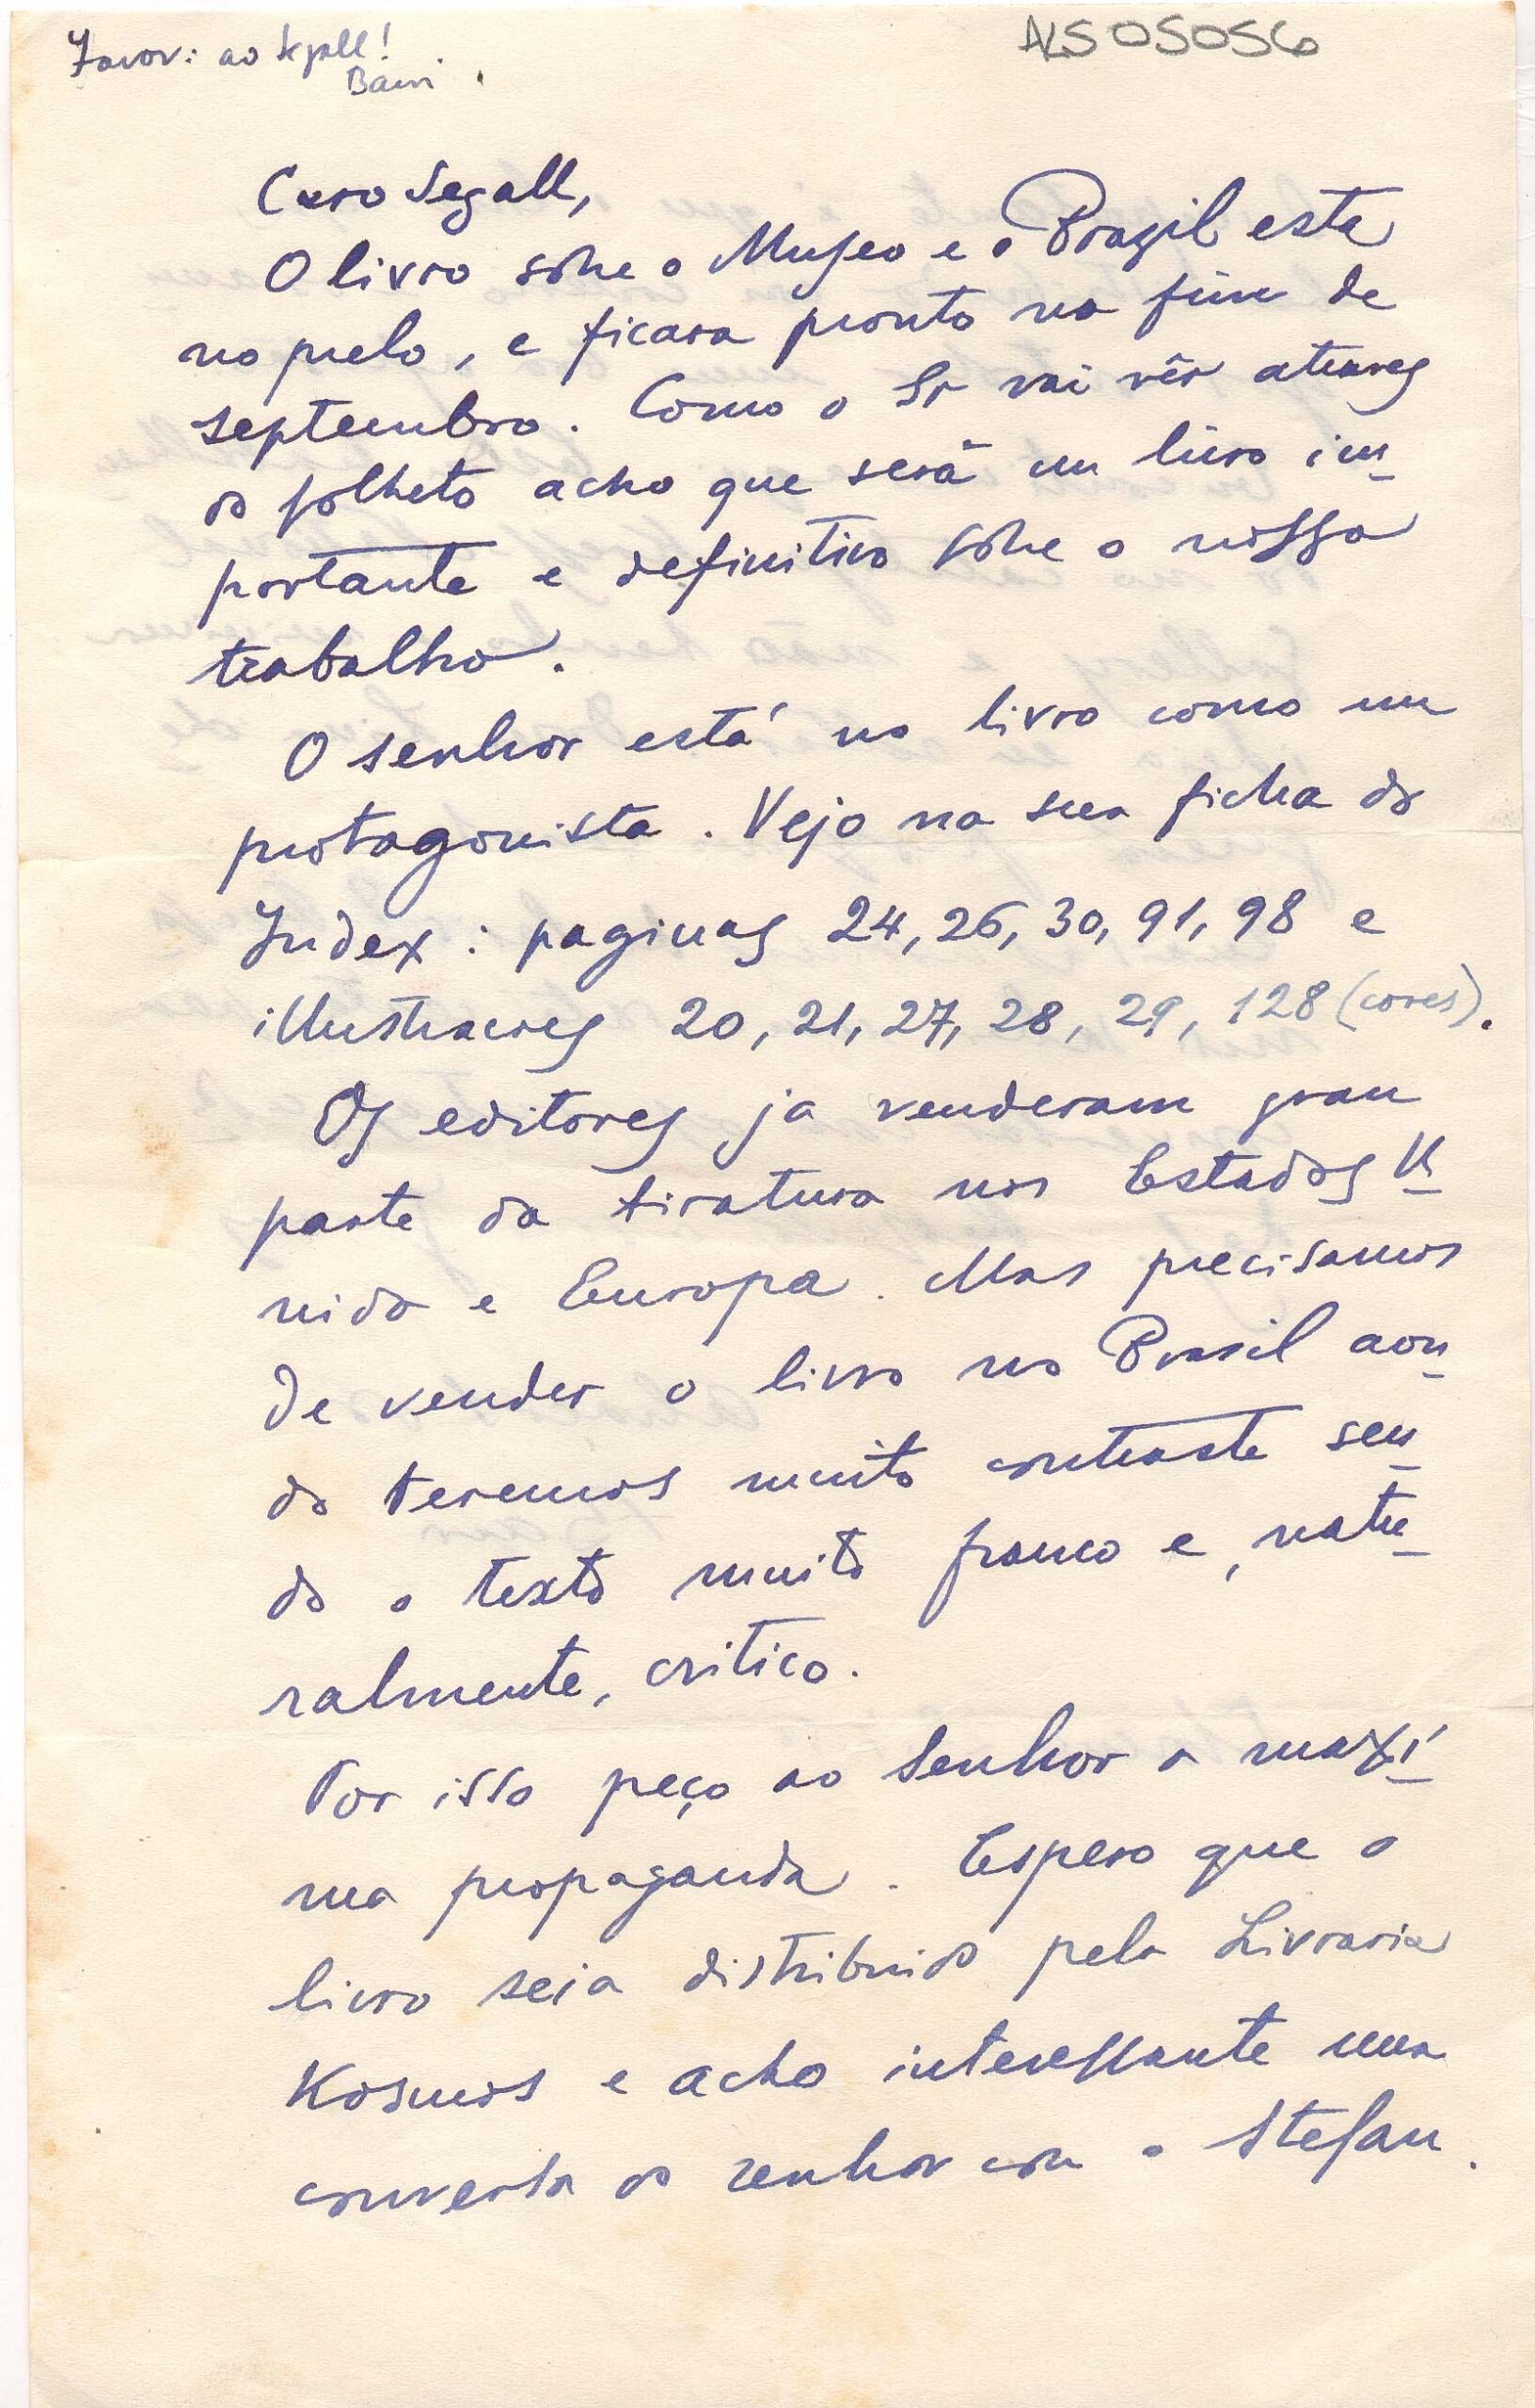 Favor: ao Segall!
ALS 05056
Bardi
Caro Segall,
O livro sobre o Museo e o Brazil esta
no prelo, e ficara pronto no fim de
septembro. Como o Sr vai vêr atraves
do folheto acho que será um livro im-
portante e definitivo sobre o nosso
trabalho.
O senhor está no livro como um
protagonista. Vejo na sua ficha do
Index: paginas 24, 26, 30, 91, 98 e
illustracoes 20, 21, 27, 28, 29, 128 (cores).
Os editores ja venderam gran
parte da tiratura nos Estados U-
nido e Europa. Mas precisamos
de vender o livro no Brasil aon-
do teremos muito contraste sen-
do o texto muito franco e, natu-
ralmente, critico.
Por isso peço ao Senhor a maxi-
ma propaganda. Espero que o
livro seia distribuido pela Livraria
Kosmos e acho interessante uma
conversa do senhor com o Stefan.